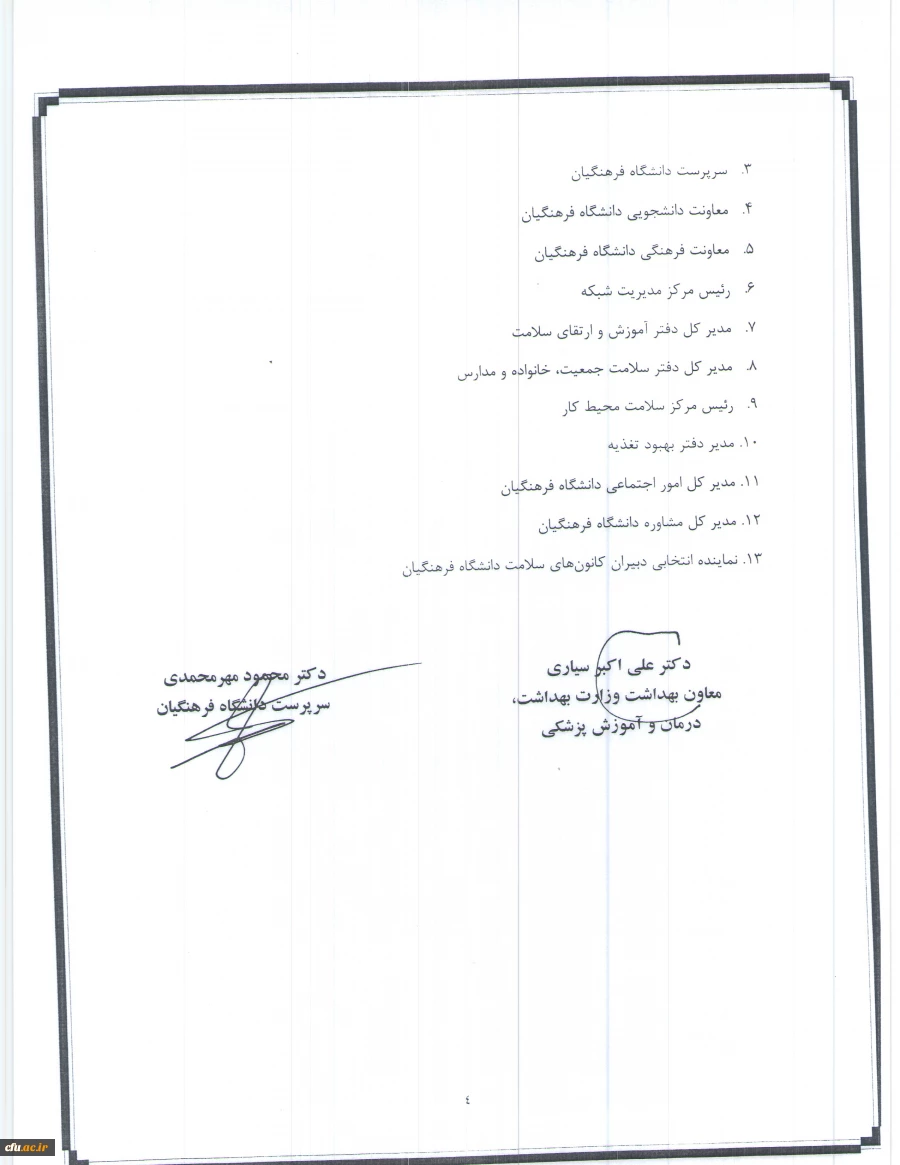 ۳. سرپرست دانشگاه فرهنگیان
۴. معاونت دانشجویی دانشگاه فرهنگیان
۵. معاونت فرهنگی دانشگاه فرهنگیان
۶. رئیس مرکز مدیریت شبکه
۷. مدیر کل دفتر آموزش و ارتقای سلامت
۸. مدیر کل دفتر سلامت جمعیت، خانواده و مدارس
۹. رئیس مرکز سلامت محیط کار
۱۰. مدیر دفتر بهبود تغذیه
۱۱. مدیر کل امور اجتماعی دانشگاه فرهنگیان
۱۲. مدیر کل مشاوره دانشگاه فرهنگیان
۱۳. نماینده انتخابی دبیران کانون‌های سلامت دانشگاه فرهنگیان
دکتر علی اکبر سیاری
معاون بهداشت وزارت بهداشت،
درمان و آموزش پزشکی
دکتر محمود مهرمحمدی
سرپرست دانشگاه فرهنگیان
٤
cfu.ac.ir